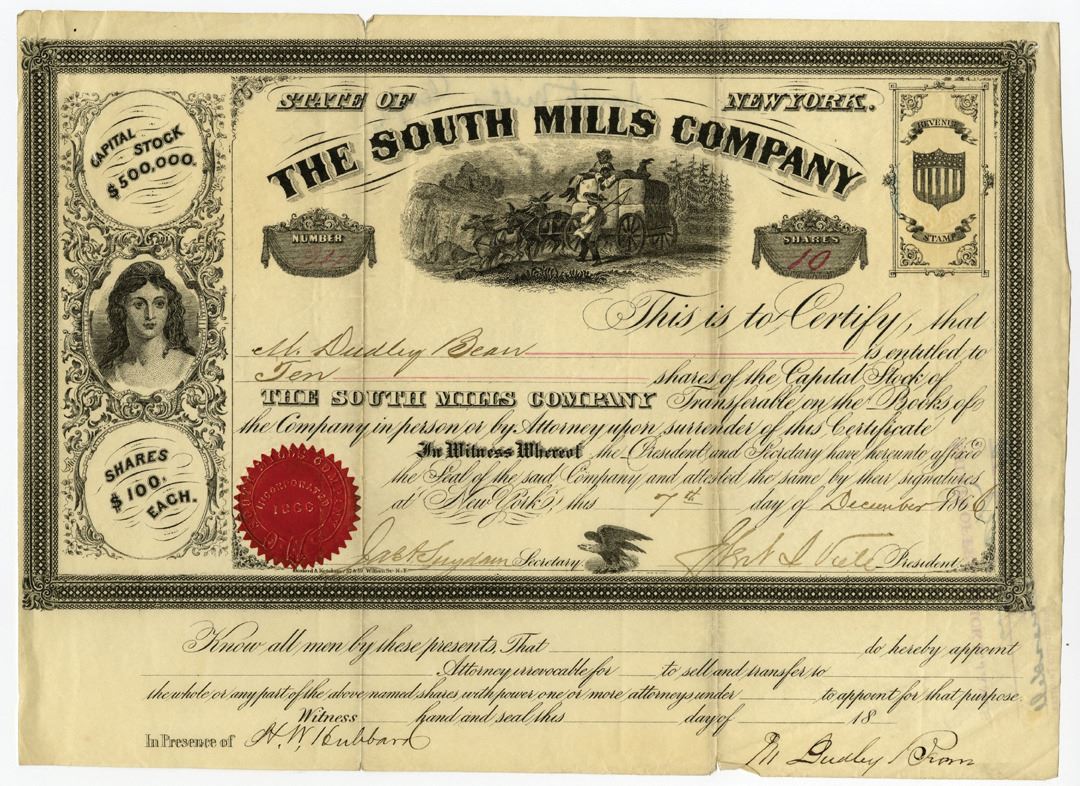 STATE OF NEW YORK.
THE SOUTH MILLS COMPANY
CAPITAL STOCK $500,000.
REVENUE
STAMP
NUMBER
SHARES
10
This is to Certify, that
M. Dudley Bean is entitled to
Ten shares of the Capital Stock of
THE SOUTH MILLS COMPANY Transferable on the Books of
the Company in person or by Attorney upon surrender of this Certificate
In Witness Whereof the President and Secretary have hereunto affixed
the Seal of the said Company and attested the same by their signatures
at New York, this 7th day of December 1866
SHARES $100. EACH.
INCORPORATED
1866
Secretary.
President
Know all men by these presents, That do hereby appoint
Attorney irrevocable for to sell and transfer to
the whole or any part of the above named shares with power one or more attorneys under to appoint for that purpose.
Witness hand and seal this day of 18
In Presence of H. W. Hubbard
M Dudley